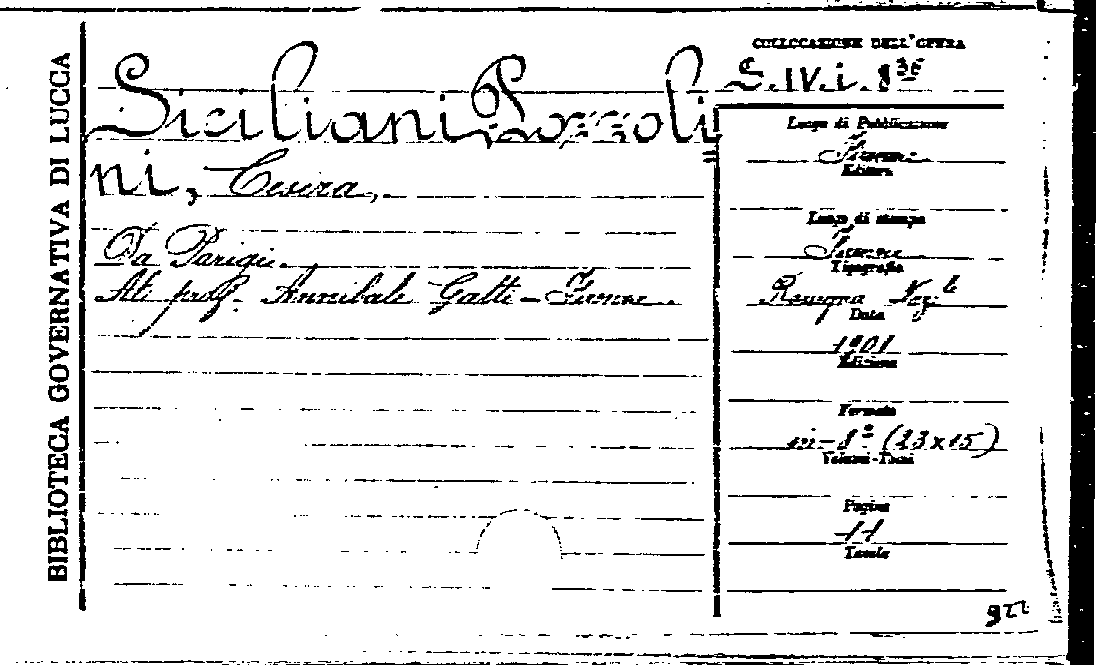 BIBLIOTECA GOVERNATIVA DI LUCCA
Siciliani Pozzoli
ni, Cesira,
Da Parigi.
Al prof. Annibale Gatti - Firenze.
COLLOCAZIONE DELL'OPERA
Luogo di Pubblicazione
Firenze
Editore
Luogo di stampa
Firenze
Tipografia
Rassegna Naz.le
Data
1901
Edizione
Formato
in-8º (23x15)
Volumi-Tomi
Pagine
11
Tavole
922